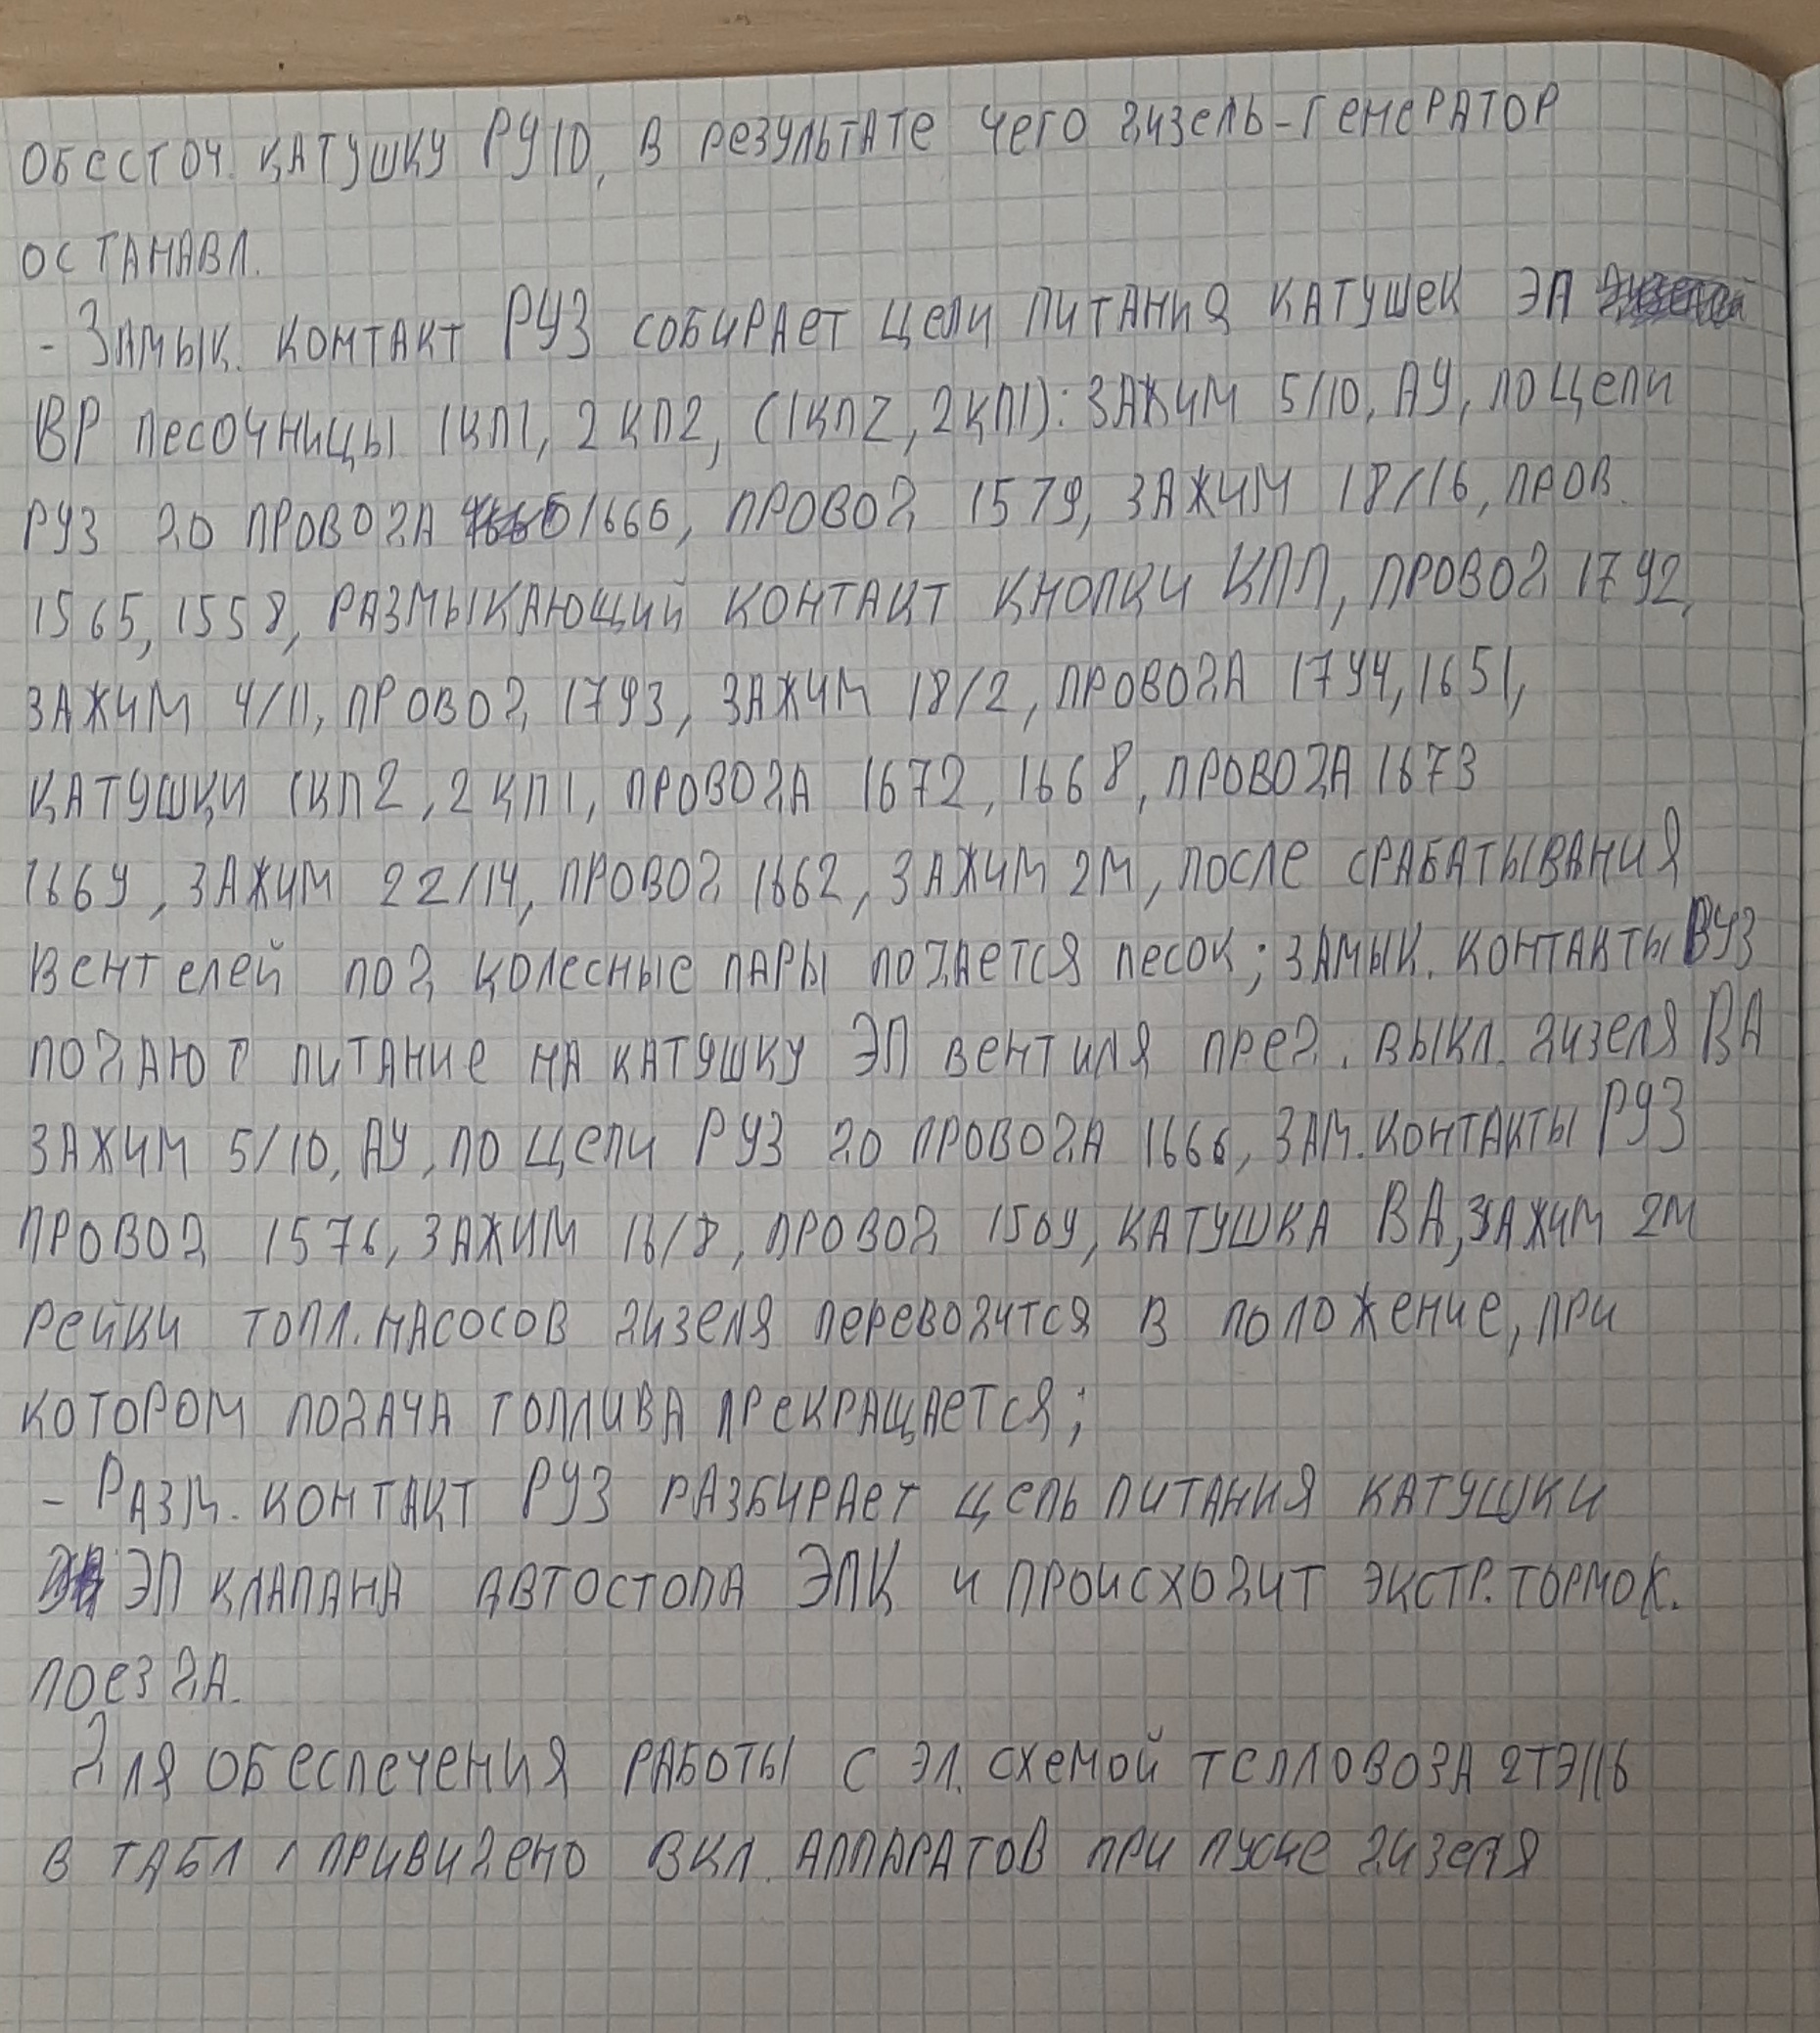 обесточ. катушку РУ10, в результате чего дизель-генератор
останавл.
- Замык. контакт РУ3 собирает цепи питания катушек ЭП
ВР песочницы 1КП1, 2КП2, (1КП2, 2КП1): зажим 5/10, АУ, по цепи
РУ3 до провода 1666, провод 1579, зажим 18/16, пров.
1565, 1558, размыкающий контакт кнопки КПП, провод 1792,
зажим 4/11, провод 1793, зажим 18/2, провода 1794, 1651,
катушки 1КП2, 2КП1, провода 1672, 1668, провода 1673
1669, зажим 22/14, провод 1662, зажим 2М, после срабатывания
вентелей под колесные пары подается песок; замык. контакты РУ3
подают питание на катушку ЭП вентиля пред. выкл. дизеля ВА
зажим 5/10, АУ, по цепи РУ3 до провода 1666, зам. контакты РУ3
провод 1576, зажим 16/8, провод 1509, катушка ВА, зажим 2М
рейки топл. насосов дизеля переводится в положение, при
котором подача топлива прекращается;
- Разм. контакт РУ3 разбирает цепь питания катушки
ЭП клапана автостопа ЭПК и происходит экстр. тормож.
поезда.
Для обеспечения работы с эл. схемой тепловоза 2ТЭ116
в табл 1 привидено вкл. аппаратов при пуске дизеля